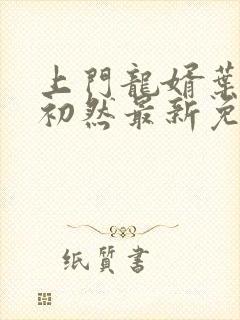 上門龍婿葉
初然最新免
纸質書